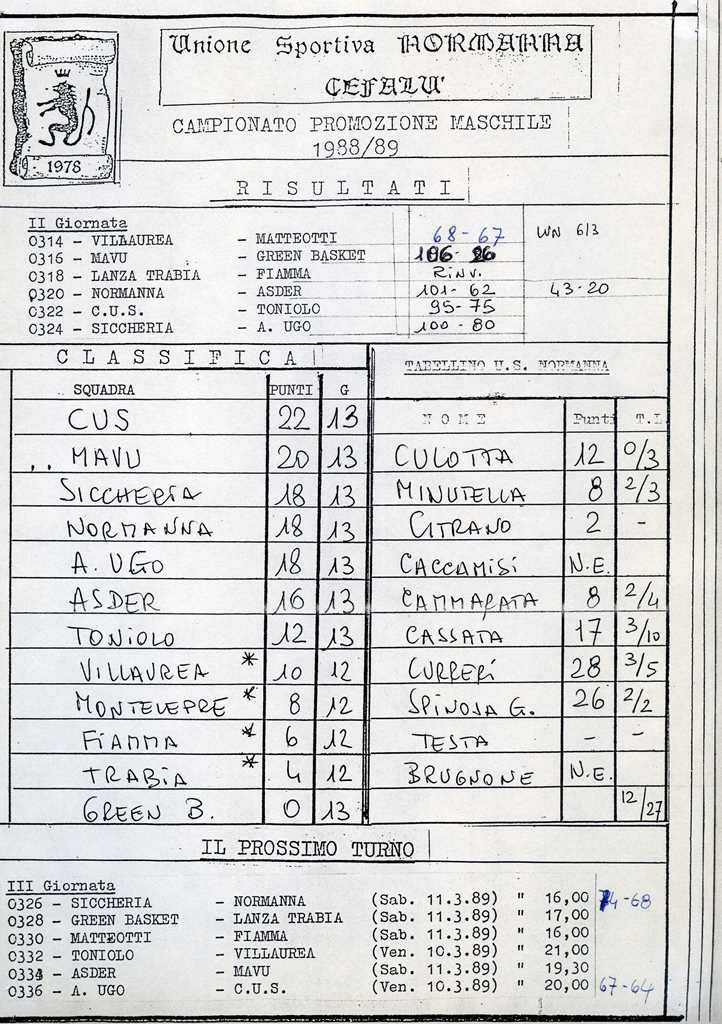 Unione Sportiva NORMANNA
CEFALU'
1978
CAMPIONATO PROMOZIONE MASCHILE
1988/89
RISULTATI
II Giornata
0314 - VILLAUREA - MATTEOTTI 68-67 WN 6/3
0316 - MAVU - GREEN BASKET 106-26
0318 - LANZA TRABIA - FIAMMA RINV.
0320 - NORMANNA - ASDER 101-62 43-20
0322 - C.U.S. - TONIOLO 95-75
0324 - SICCHERIA - A. UGO 100-80
CLASSIFICA
SQUADRA PUNTI G
CUS 22 13
.. MAVU 20 13
SICCHERIA 18 13
NORMANNA 18 13
A. UGO 18 13
ASDER 16 13
TONIOLO 12 13
VILLAUREA * 10 12
MONTELEPRE * 8 12
FIAMMA * 6 12
TRABIA * 4 12
GREEN B. 0 13
TABELLINO U.S. NORMANNA
NOME Punti T.L
CULOTTA 12 0/3
MINUTELLA 8 2/3
CITRANO 2 -
CACCAMISI N.E.
CAMMARATA 8 2/4
CASSATA 17 3/10
CURRERI 28 3/5
SPINOSA G. 26 2/2
TESTA - -
BRUGNONE N.E.
12/27
IL PROSSIMO TURNO
III Giornata
0326 - SICCHERIA - NORMANNA (Sab. 11.3.89) " 16,00 74-68
0328 - GREEN BASKET - LANZA TRABIA (Sab. 11.3.89) " 17,00
0330 - MATTEOTTI - FIAMMA (Sab. 11.3.89) " 16,00
0332 - TONIOLO - VILLAUREA (Ven. 10.3.89) " 21,00
0334 - ASDER - MAVU (Sab. 11.3.89) " 19,30
0336 - A. UGO - C.U.S. (Ven. 10.3.89) " 20,00 67-64